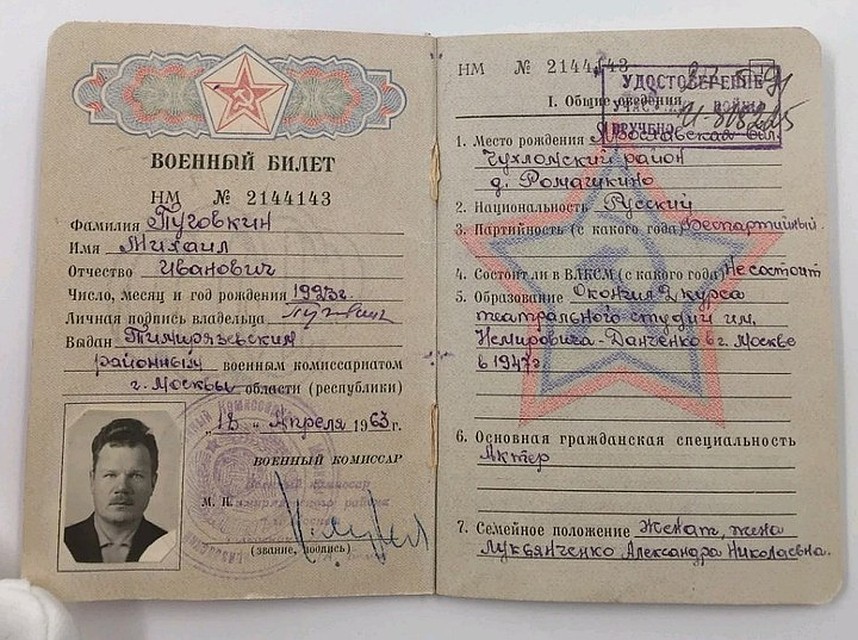 ВОЕННЫЙ БИЛЕТ
НМ № 2144143
Фамилия Пуговкин
Имя Михаил
Отчество Иванович
Число, месяц и год рождения 1923г.
Личная подпись владельца
Выдан Тимирязевским
районным военным комиссариатом
г. Москвы области (республики)
„18 “ Апреля 1963г.
ВОЕННЫЙ КОМИССАР
М. П.
(звание, подпись)
НМ № 2144143
УДОСТОВЕРЕНИЕ
ВРУЧЕНО
I. Общие сведения
1. Место рождения Ярославская обл.
Чухломский район
д. Ромашукино
2. Национальность Русский
3. Партийность (с какого года) Беспартийный.
4. Состоит ли в ВЛКСМ (с какого года) Не состоит
5. Образование Окончил 2 курса
театрального студии им.
Немировича-Данченко в г. Москве
в 1947г.
6. Основная гражданская специальность
Актер
7. Семейное положение Женат, жена
Лукьянченко Александра Николаевна.